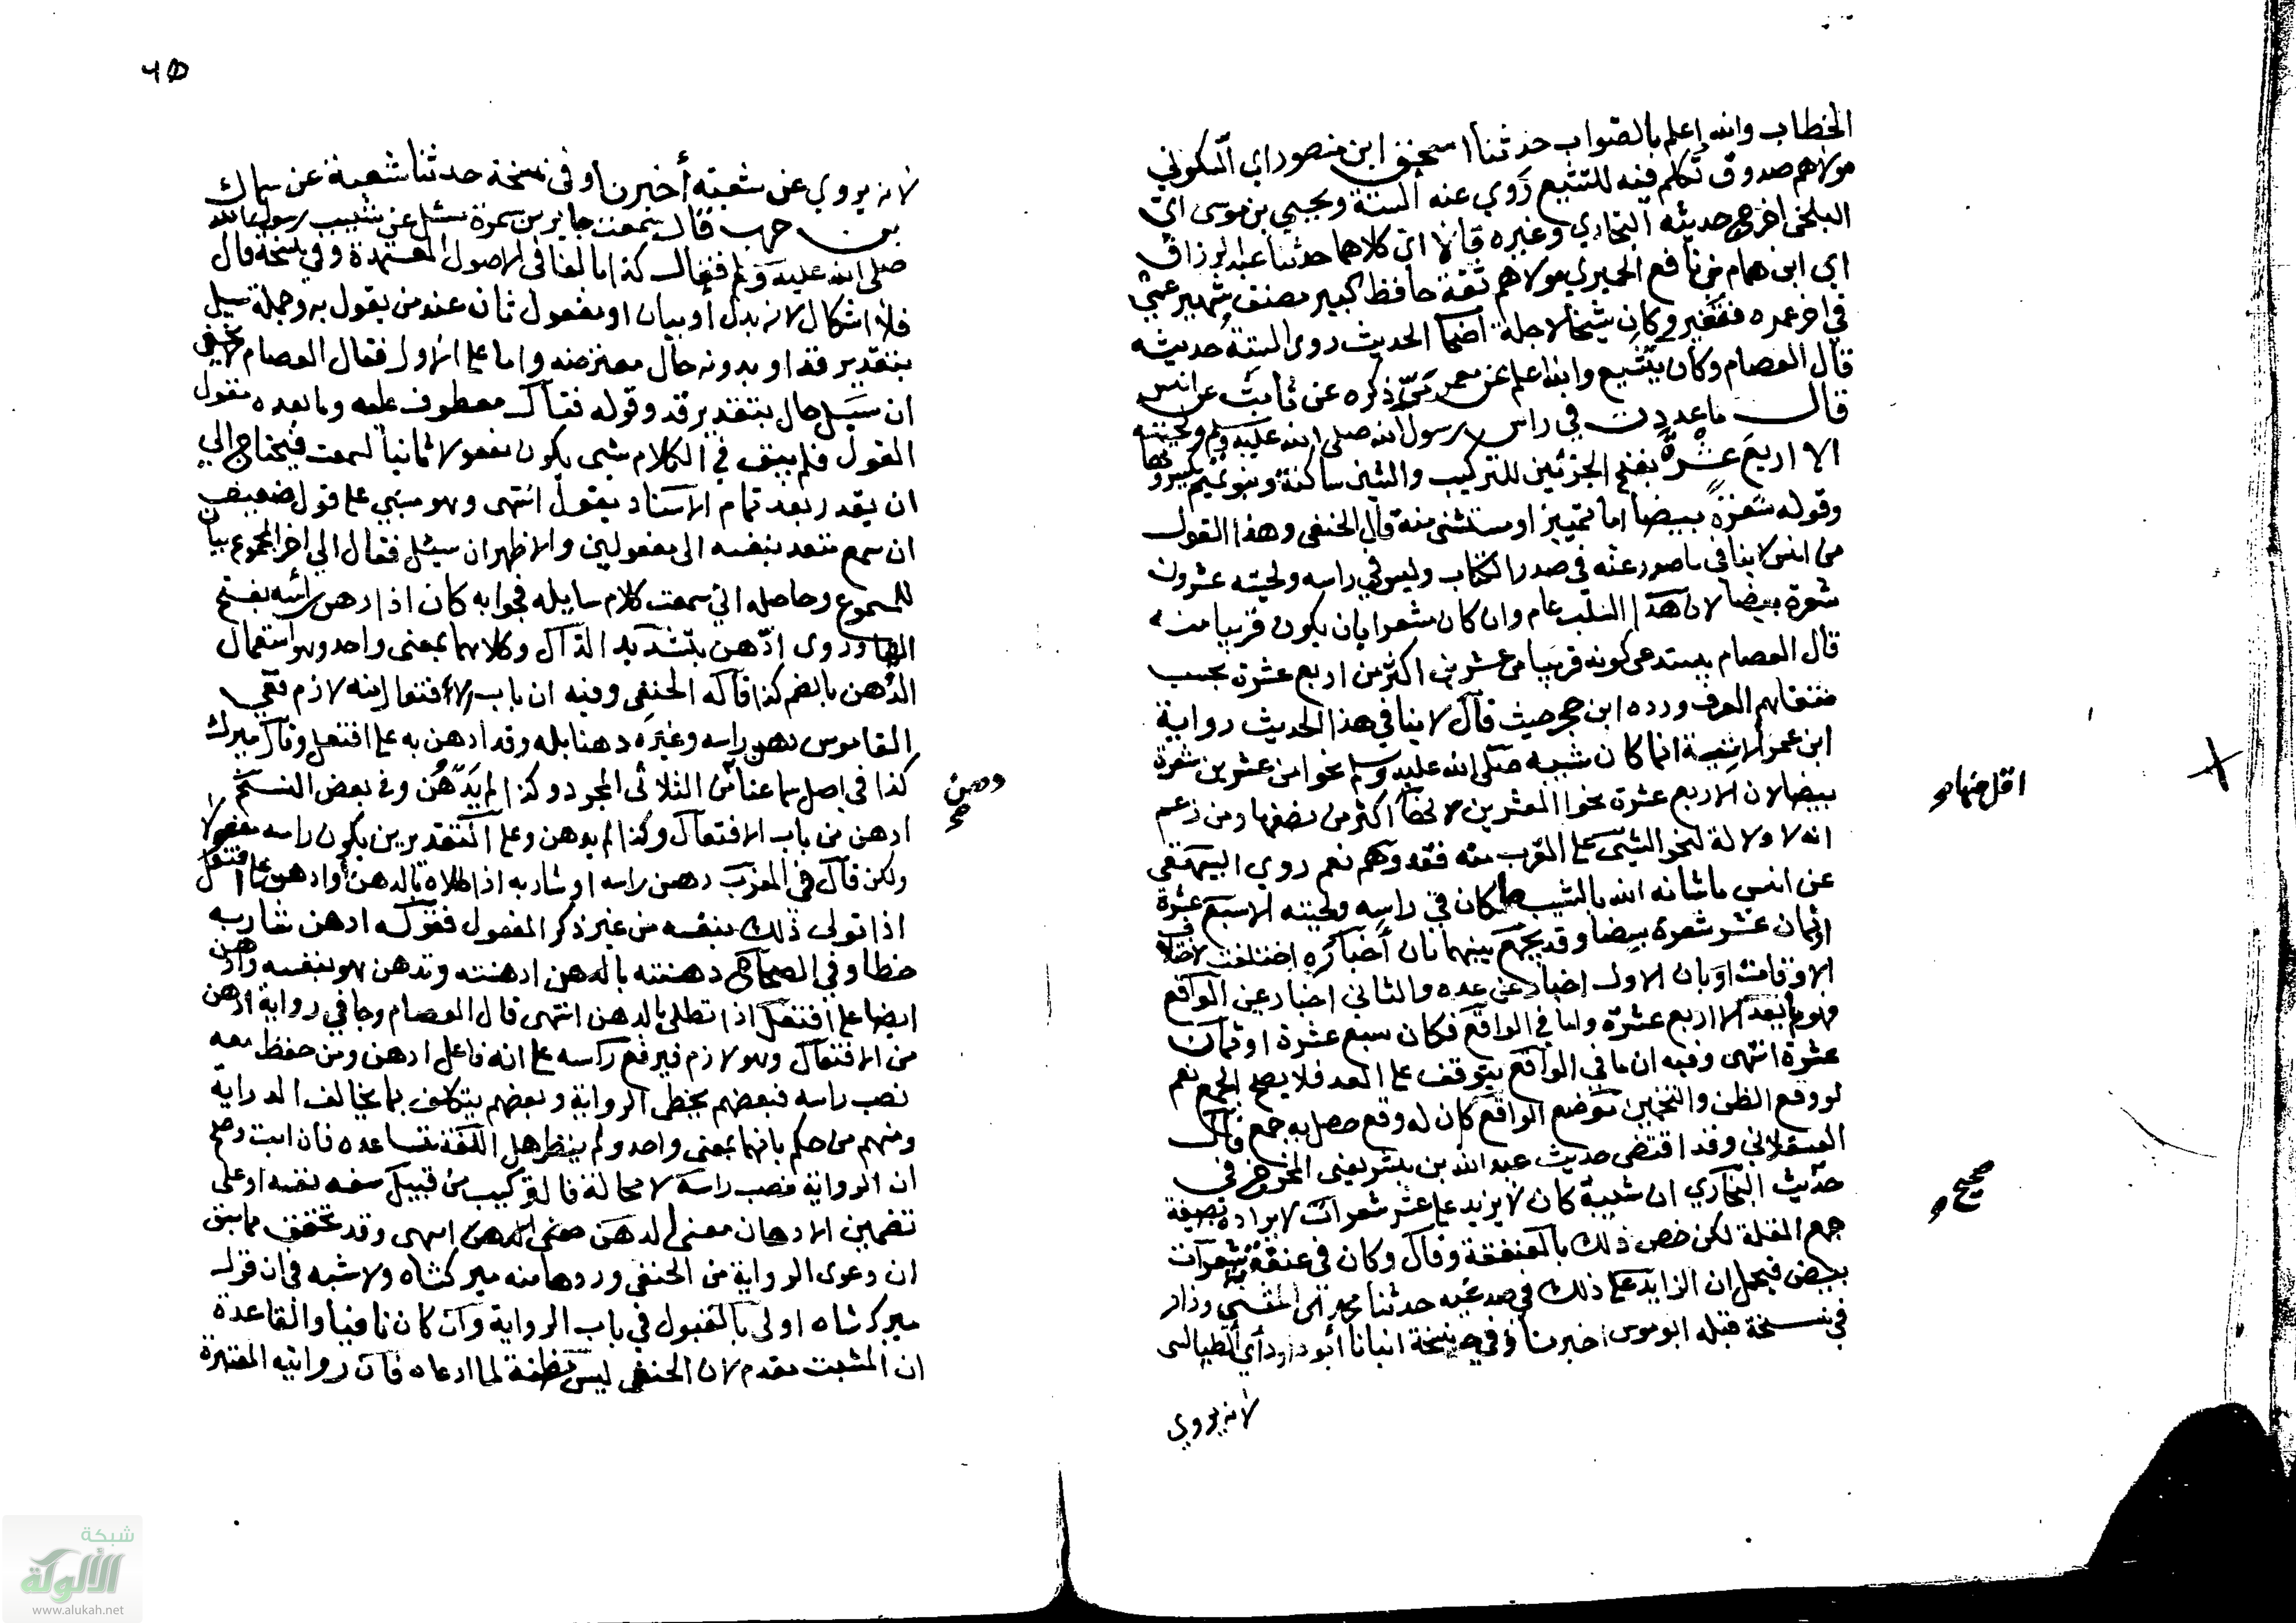 الخطاب والله اعلم بالصواب حدثنا اسحق ابن منصور اي السكوني
مولاهم صدوق تكلم فيه للتشيع روي عنه الستة ويحيي بن موسى اي
البلخي اخرج حديثه البخاري وغيره قالا اي كلاهما حدثنا عبد الرزاق
اي ابن همام بن نافع الحميري مولاهم ثقة حافظ كبير مصنف شهير عمي
في اخر عمره فتغير وكان شيخا لاجلة اصحاب الحديث روى الستة حديثه
قال العصام وكان يتشيع والله اعلم عن معمر مر ذكره عن ثابت عن انس
قال ما عددت في راس رسول الله صلى الله عليه وسلم ولحيته
الا اربع عشرة بفتح الجزئين للتركيب والشين ساكنة وبنو تميم يكسرونها
وقوله شعرة بيضا اما تمييز او مستثنى منه قال الحنفي وهذا القول
من انس لا ينافي ما صدر عنه في صدر الكتاب وليس في راسه ولحيته عشرون
شعرة بيضا لان هذا السلب عام وان كان مشعرا بان يكون قريبا منه
قال العصام يستدعي كونه قريبا من عشرين اكثر من اربع عشرة بحسب
متفاهم العرف ورده ابن حجر حيث قال لا ينافي هذا الحديث رواية
ابن عمر الاتية انما كان شيبه صلى الله عليه وسلم نحوا من عشرين شعرة
بيضا لان الاربع عشرة نحوا العشرين لانها اكثر من نصفها ومن زعم
انه لا دلالة لنحو الشئ على القرب منه فقد وهم نعم روي البيهقي
عن انس ما شانه الله بالشيب ما كان في راسه ولحيته الا سبع عشرة
او ثمان عشر شعرة بيضا وقد يجمع بينهما بان أخباره اختلفت لاختلاف
الاوقات او بان الاول اخبار عن عده والثاني اخبار عن الواقع
فهو لم يعد الا اربع عشرة واما في الواقع فكان سبع عشرة او ثمان
عشرة انتهى وفيه ان ما في الواقع يتوقف على العد فلا يصح الجمع نعم
لو وقع الظن والتخمين موضع الواقع كان له وقع حصل به جمع قال
العسقلاني وقد اقتضى حديث عبد الله بن بسر يعني المخرج في
حديث البخاري ان شيبه كان لا يزيد على عشر شعرات لايراده بصيغة
جمع القلة لكن خص ذلك بالعنفقة وقال وكان في عنفقته شعرات
بيض فيحمل ان الزايد على ذلك في صدغيه حدثنا محمد بن المثنى وزاد
في نسخة قبله ابو موسى اخبرنا وفي نسخة انبانا أبو داود أي الطيالسي
لانه يروي
اقل منها صح
صحيح
٦٥
لانه يروي عن شعبته أخبرنا وفي نسخة حدثنا شعبة عن سماك
بن حرب قال سمعت جابر بن سمرة سئل عن شيب رسول الله
صلى الله عليه وسلم فقال كذا بالفا في الاصول المعتمدة وفي نسخة قال
فلا اشكال لانه بدل أو بيان او مفعول ثان عند من يقول به وجملة سيل
بتقدير قد او بدونه حال معترضه واما على الاول فقال العصام لا يخفى
ان سيل حال بتقدير قد وقوله فقال معطوف عليه وما بعده مقول
القول فلم يبق في الكلام شئ يكون مفعولا ثانيا لسمعت فيحتاج الي
ان يقدر بعد تمام الاسناد يقول انتهى وهو مبني على قول ضعيف
ان سمع متعد بنفسه الى مفعولين والاظهر ان سيئل فقال الي اخر المجموع بيان
للمسموع وحاصله اني سمعت كلام سايله فجوابه كان اذا دهن رأسه بفتح
الها وروى ادّهن بتشديد الدال وكلاهما بمعنى واحد وهو استعمال
الدُهن بالضم كذا قاله الحنفي وفيه ان باب الافتعال منه لازم ففي
القاموس دهن راسه وغيره دهنا بله وقد ادهن به على افتعل وقال ميرك
كذا في اصل سماعنا من الثلاثي المجرد وكذا لم يَدهُن وفي بعض النسخ
ادهن من باب الافتعال وكذا لم يدهن وعلى التقديرين يكون راسه مفعولا
ولكن قال في المغرب دهن راسه او شاربه اذا طلاه بالدهن أو ادهن على افتعل
اذا تولى ذلك بنفسه من غير ذكر المفعول فقوله ادهن شاربه
خطا وفي الصحاح دهنته بالدهن ادهنته وتدهن هو بنفسه وادهن
ايضا على افتعل اذا تطلى بالدهن انتهى قال العصام وجا في رواية ادهن
من الافتعال وهو لازم فيرفع رأسه على انه فاعل ادهن ومن حفظ معه
نصب راسه فبعضهم يخطي الرواية وبعضهم يتكلف بما يخالف الدراية
ومنهم من حكم بانهما بمعنى واحد ولم ينظر هل اللغة تساعده فان اثبت وصح
ان الرواية نصب راسه لا محالة فالتركيب من قبيل سفه نفسه او على
تضمين الادهان معنى الدهن انتهى وقد تحقق مما سبق
ان دعوى الرواية من الحنفي وردها منه ميركشاه ولا شبه في ان قول
ميركشاه اولى بالقبول في باب الرواية وان كان نافيا والقاعدة
ان المثبت مقدم لان الحنفي ليس مظنة لما ادعاه فان روايته المعتبرة
دهن
صح
شبكة
الألوكة
www.alukah.net